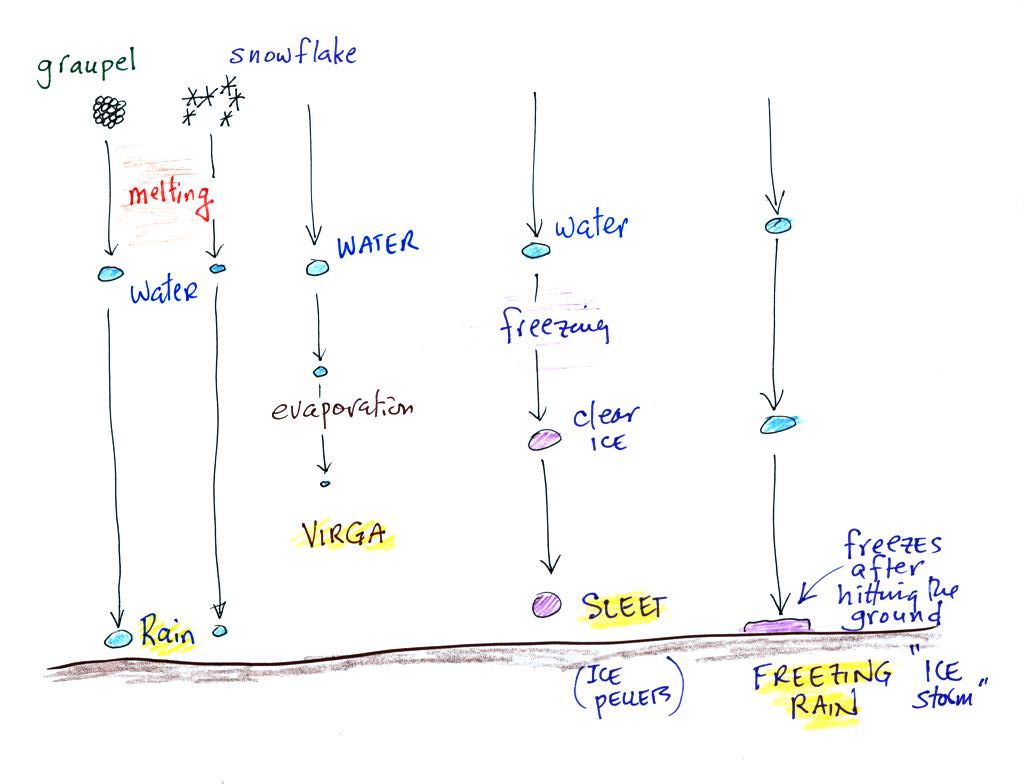 graupel
snowflake
melting
water
WATER
evaporation
VIRGA
water
freezing
clear
ICE
SLEET
(ICE
PELLETS)
freezes
after
hitting the
ground
Rain
FREEZING
RAIN
"ICE
storm"